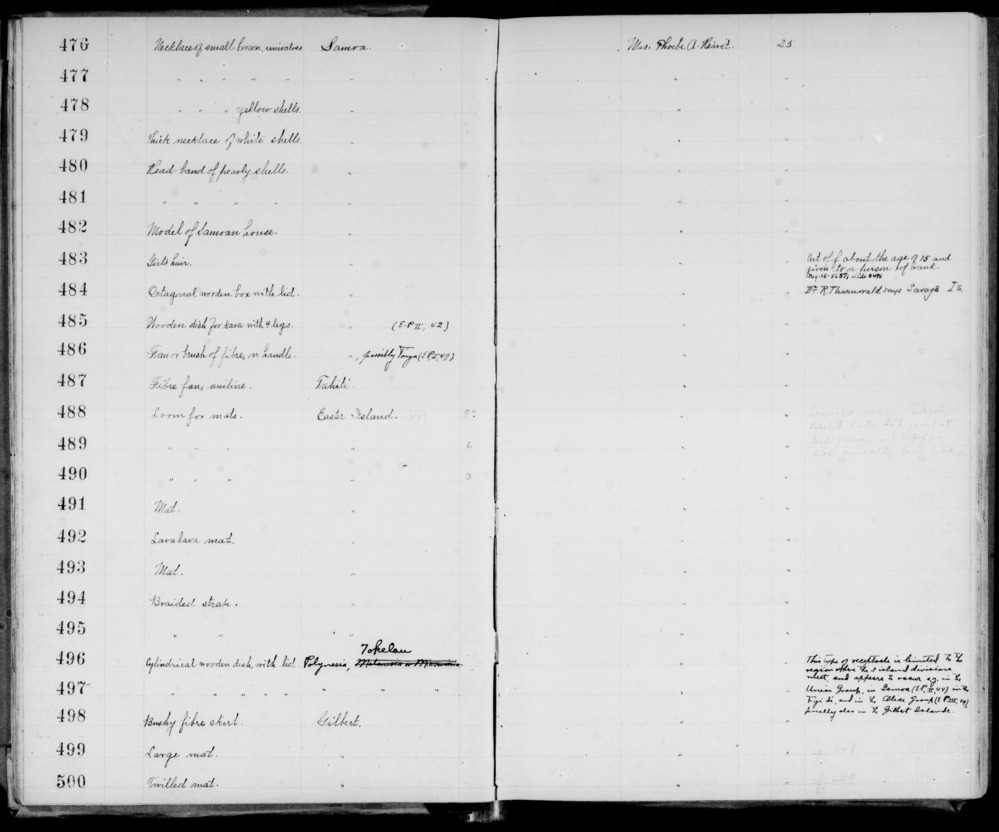 476 Necklace of small brown univalves Samoa. Mrs. Phoebe A. 25
477 " " " " " "
478 " " " yellow shells. "
479 Thick necklace of white shells. "
480 Head-band of pearly shells. "
481 " " " " "
482 Model of Samoan house. "
483 Girl's hair. " Cut off about the age of 15 and
given to a person of rank.
484 Octagonal wooden box with lid. " Dr. R. Thurnwald says Savage Is.
485 Wooden dish for kava with 4 legs. " (E.P. II, 42)
486 Fan or brush of fibre, on handle. " , possibly Tonga (E.P. II, 49)
487 Fibre fan, aniline. Tahiti.
488 Loom for mats. Easter Island.
489 " " " "
490 " " " "
491 Mat. "
492 Lavalava mat. "
493 Mat. "
494 Braided strap. "
495 " " "
Tokelau
496 Cylindrical wooden dish, with lid Polynesia, Melanesia or Micronesia This type of receptacle is limited to the
region where the 3 island divisions
meet, and appears to occur e.g. in the
497 " " " " " " " Union Group, in Samoa (E.P. II, 44) in the
Fiji Is., and in the Ellice Group
finally also in the Gilbert Islands.
498 Bushy fibre skirt. Gilbert.
499 Large mat. "
500 Twilled mat. "